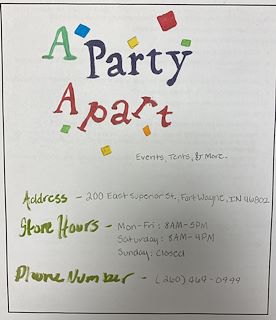 A Party
Apart
Events, Tents, & More.
Address - 200 East Superior St, Fort Wayne, IN 46802
Store Hours - Mon-Fri: 8AM-5PM
Saturday: 8AM-4PM
Sunday: Closed
Phone Number - (260) 469-0999